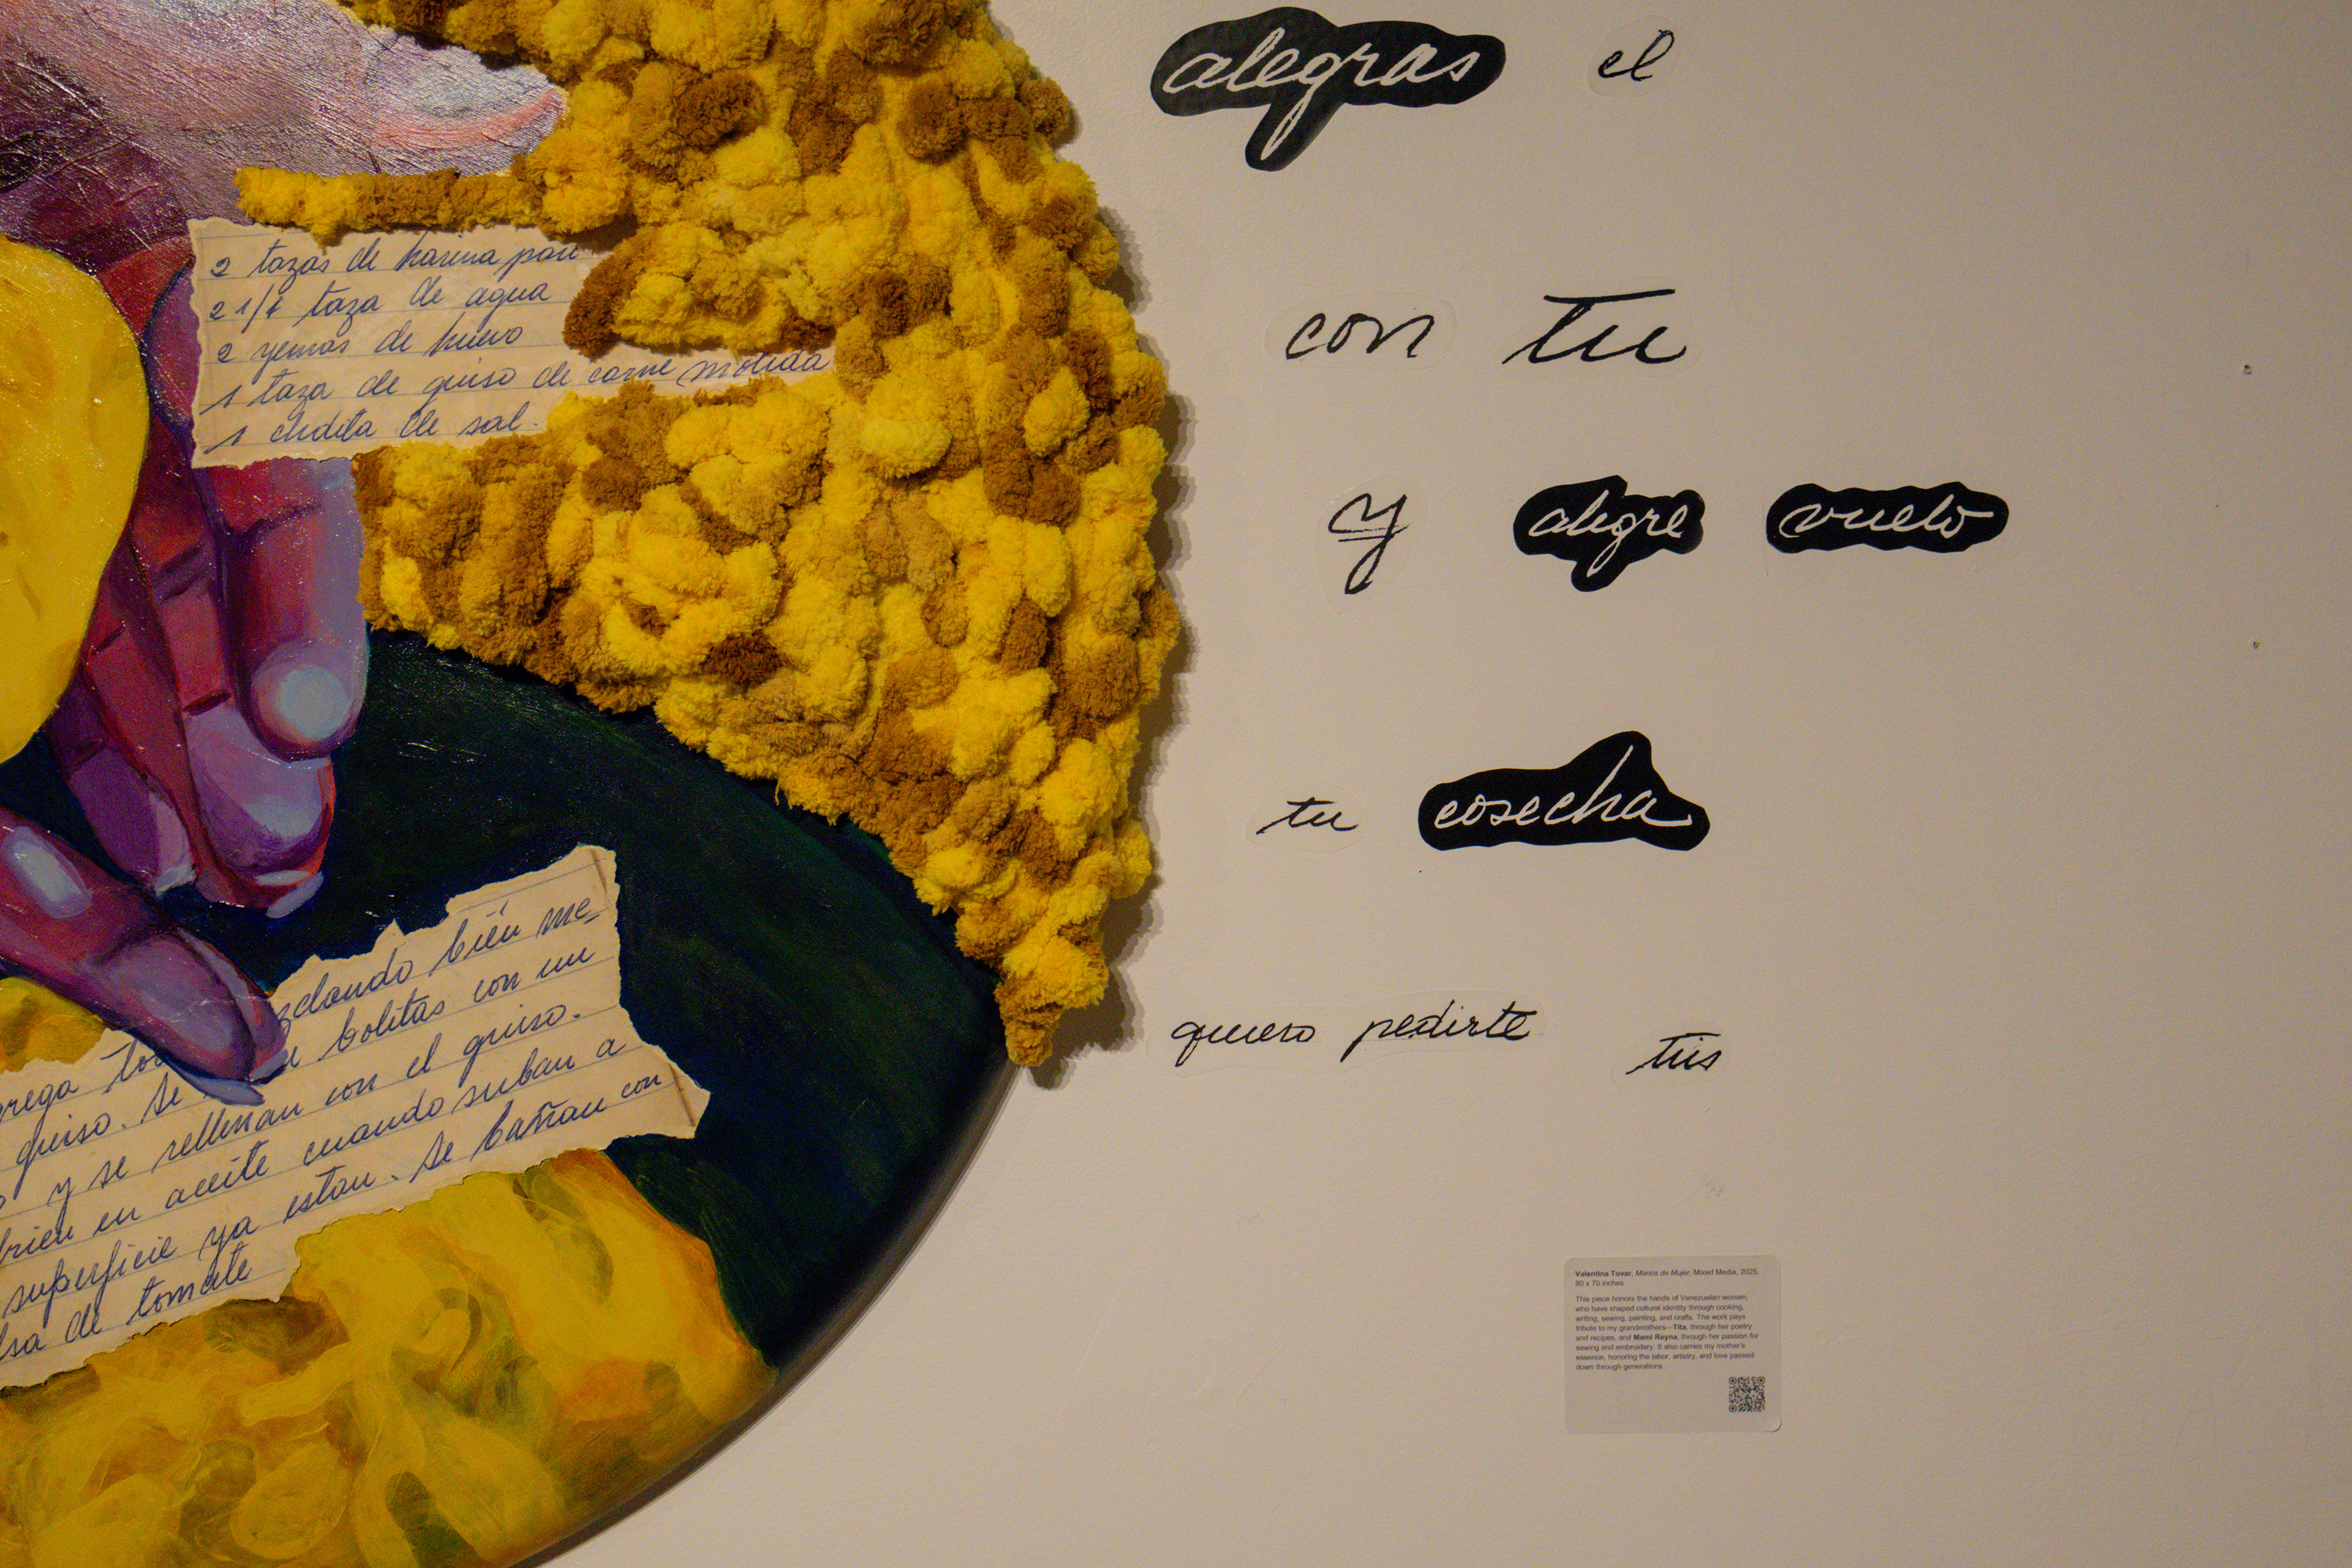 2 tazas de harina pan
2 1/4 taza de agua
2 yemas de huevo
1 taza de guiso de carne molida
1 chdita de sal.
zclando bién me-
bolitas con un
guiso. Se
y se rellenan con el guiso.
en aceite cuando suban a
superficie ya estan. Se bañan con
de tomate
alegras el
con tu
y alegre vuelo
tu cosecha
quiero pedirte tus
Valentina Tovar, Manos de Mujer, Mixed Media, 2025,
60 x 70 inches
This piece honors the hands of Venezuelan women,
who have shaped cultural identity through cooking,
writing, sewing, painting, and crafts. The work pays
tribute to my grandmothers—Tita, through her poetry
and recipes, and Mami Reyna, through her passion for
sewing and embroidery. It also carries my mother's
essence, honoring the labor, artistry, and love passed
down through generations.